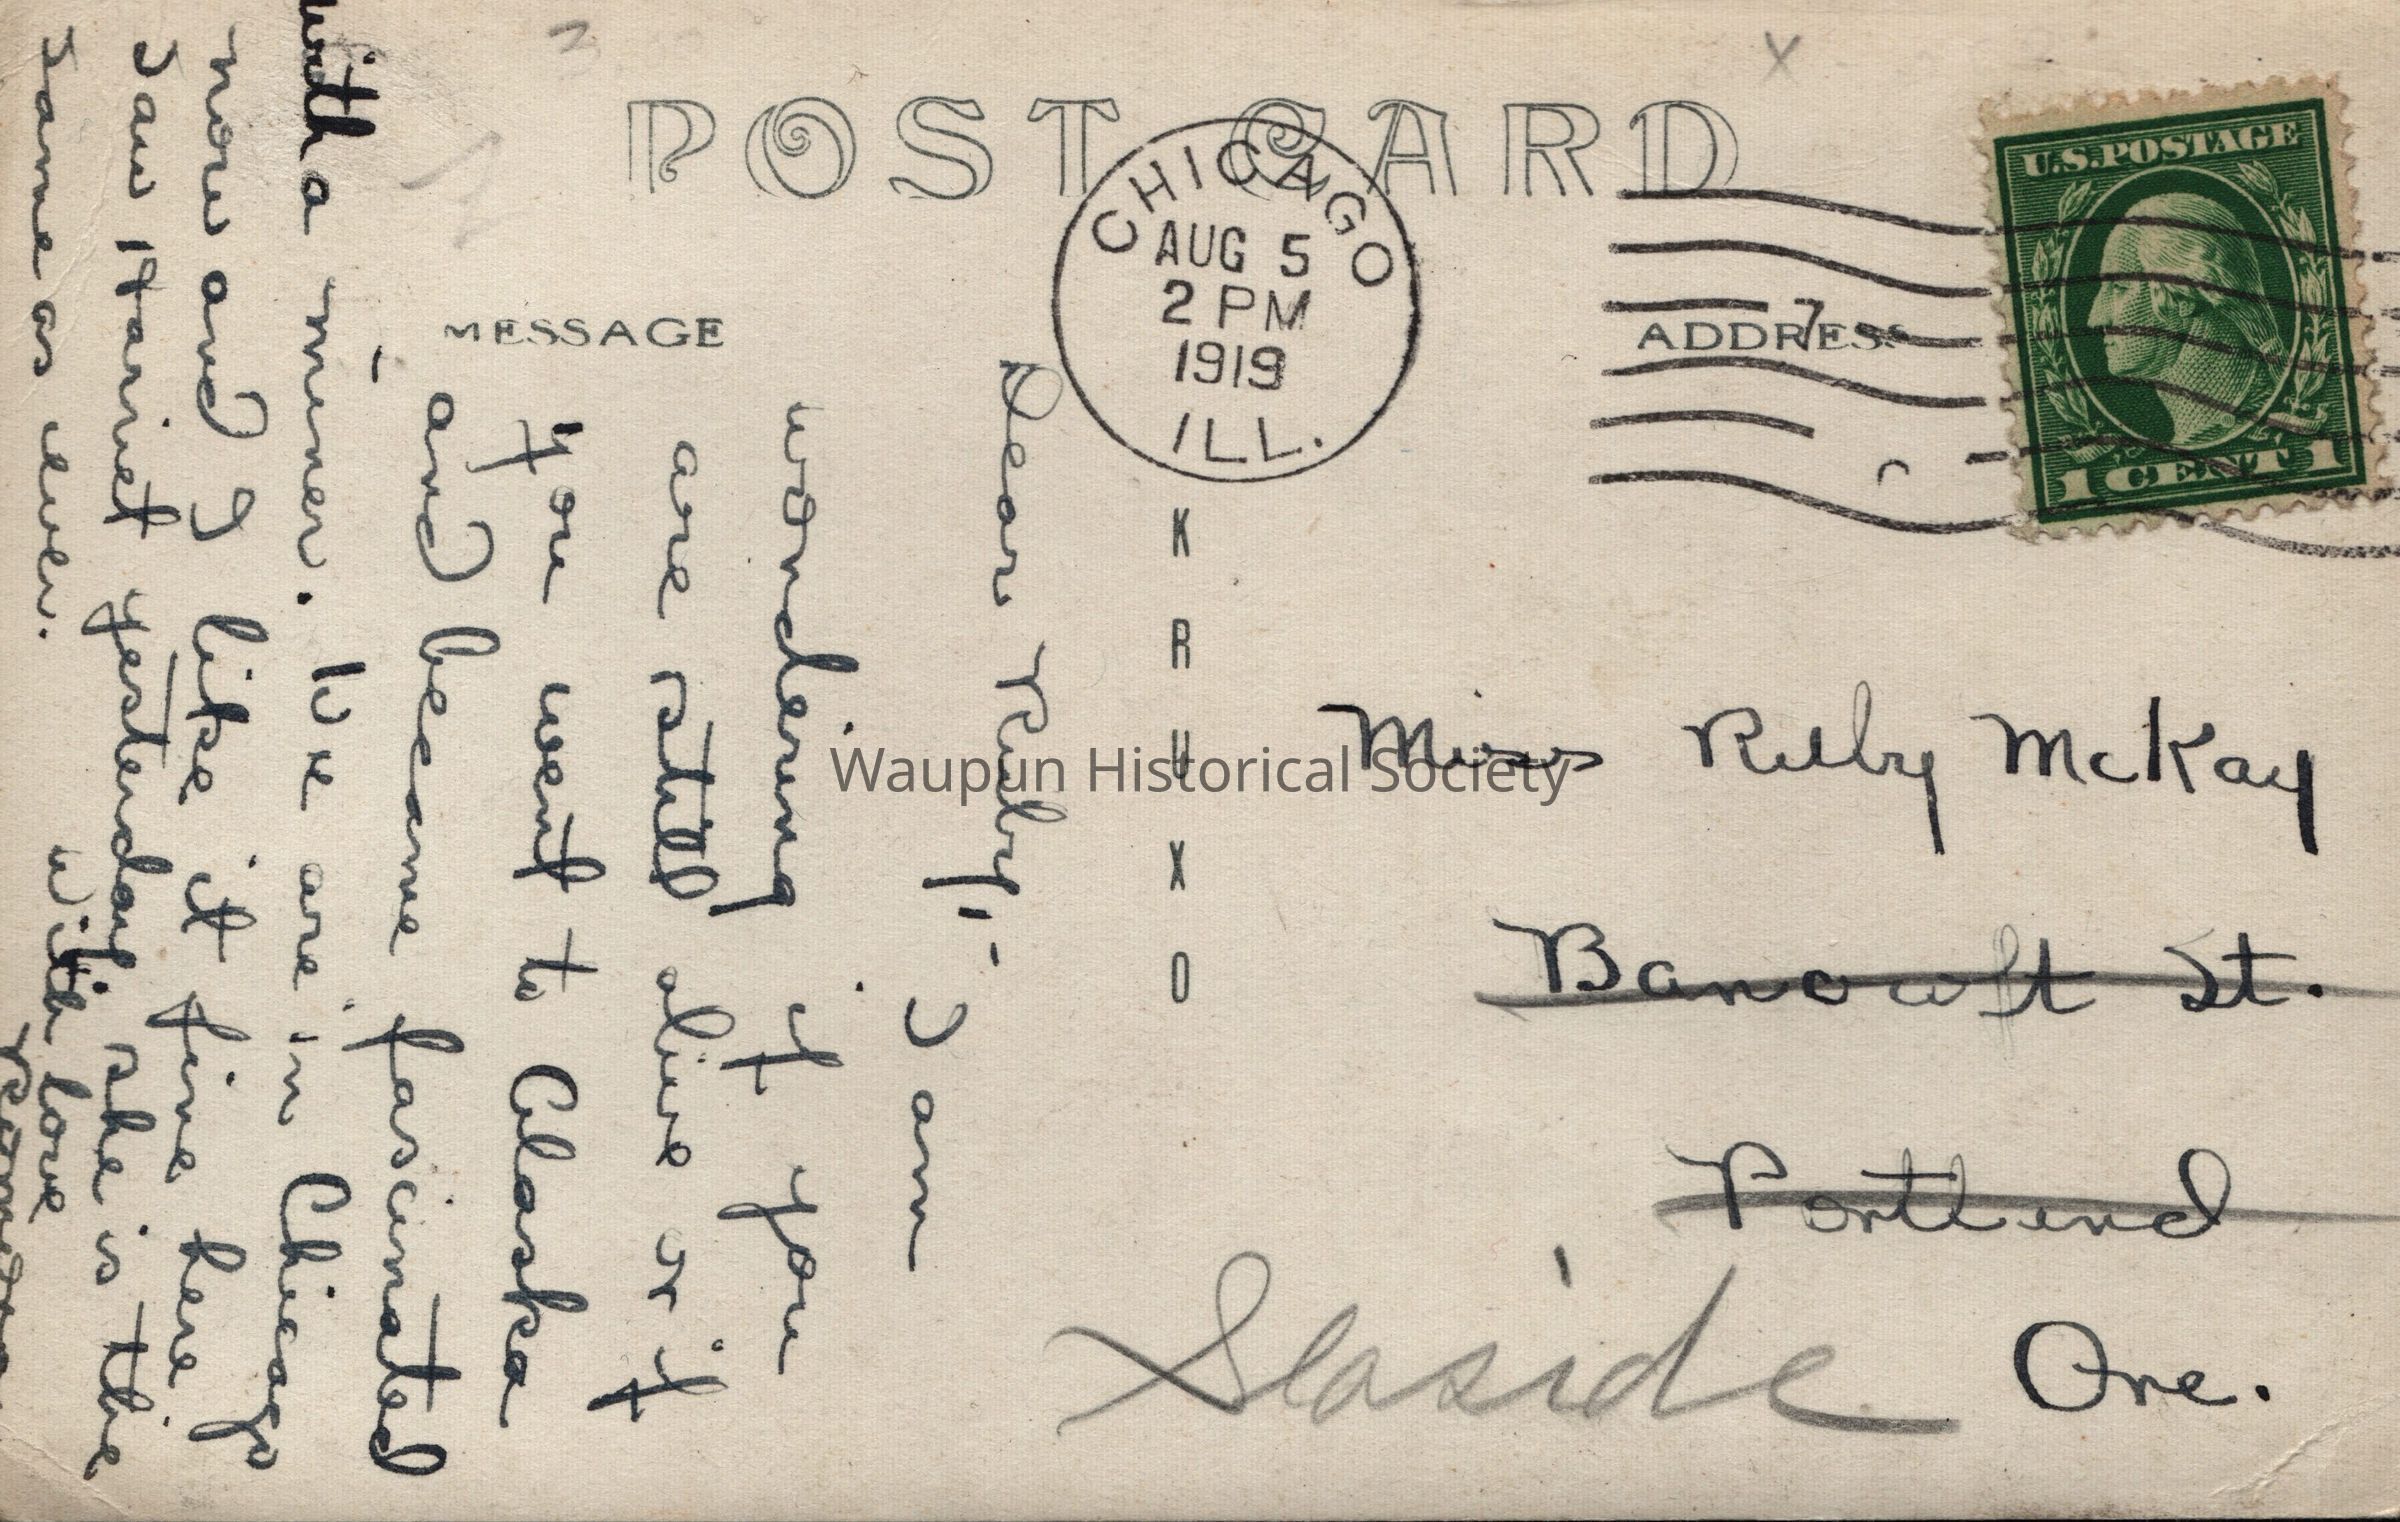 POST CARD
CHICAGO
AUG 5
2 PM
1919
ILL.
U.S. POSTAGE
1 CENT 1
MESSAGE
ADDRESS
KRUXO
Dear Ruby,-
I am
wondering if you
are still alive or if
you went to Alaska
and became fascinated
with a miner. We are in Chicago
now and I like it fine here
Saw Harriet yesterday, she is the
same as ever.
With love
Miss Ruby McKay
Bancroft St.
Portland
Seaside Ore.
Waupun Historical Society